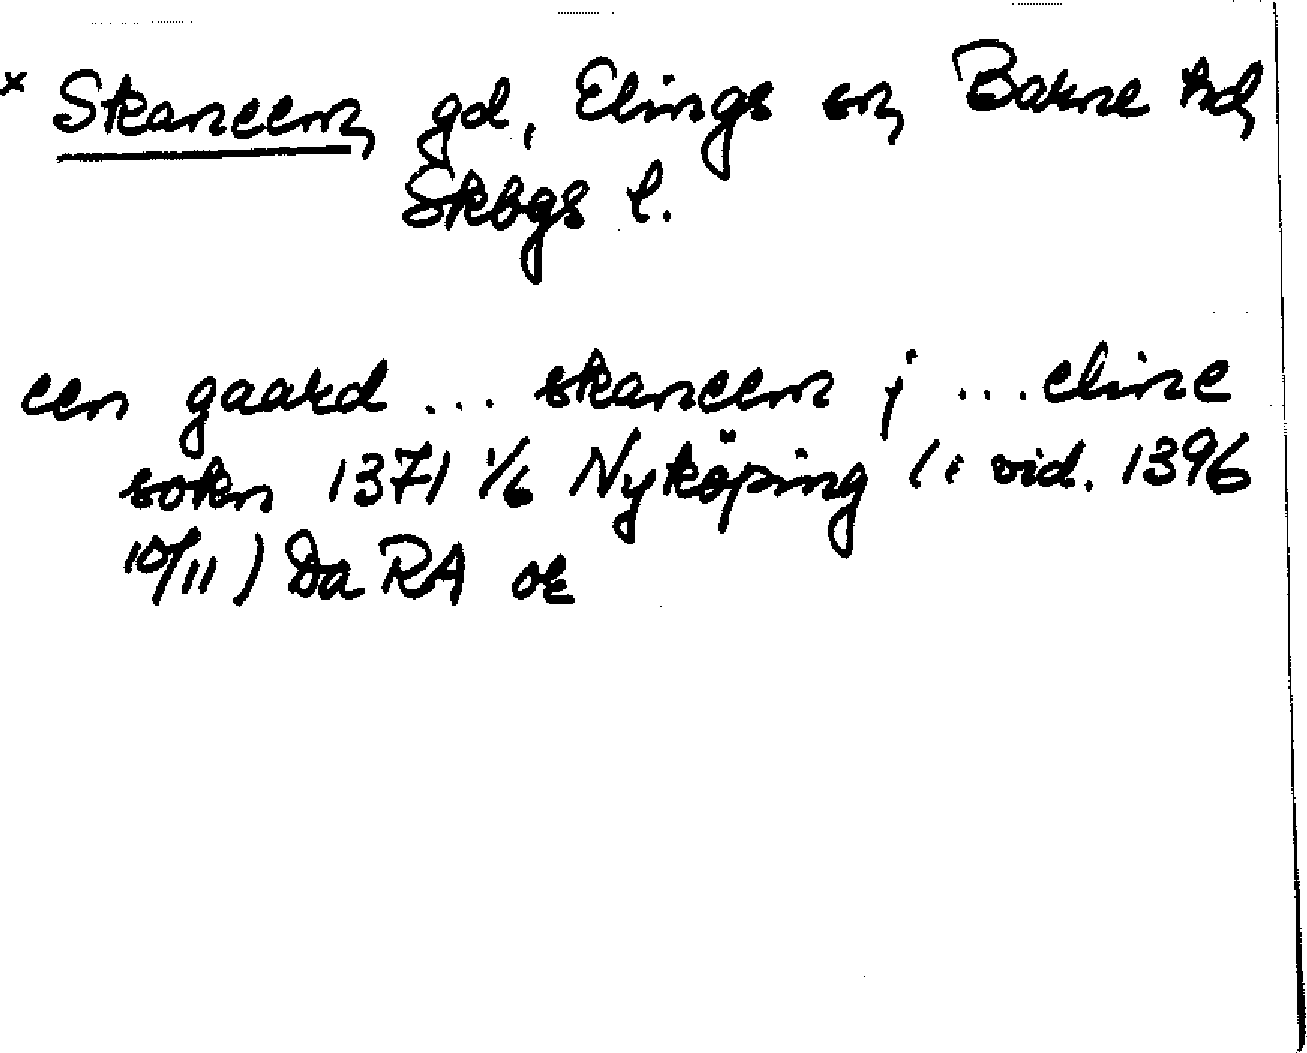 x Skaneem, gd, Elings sn, Barne hd,
Skbgs l.
een gaard ... skaneem j ... eline
sokn 1371 1/6 Nyköping (i vid. 1396
10/11) Da RA or